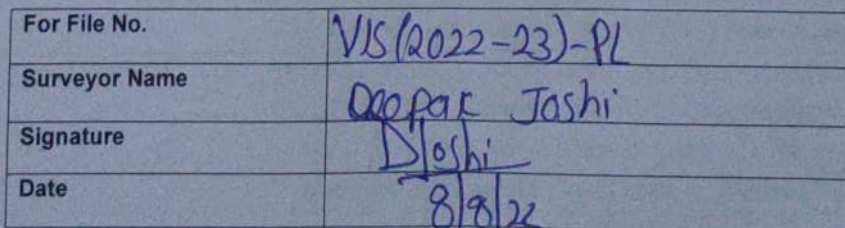 For File No. VIS(2022-23)-PL
Surveyor Name Deepak Joshi
Signature DJoshi
Date 8/8/22